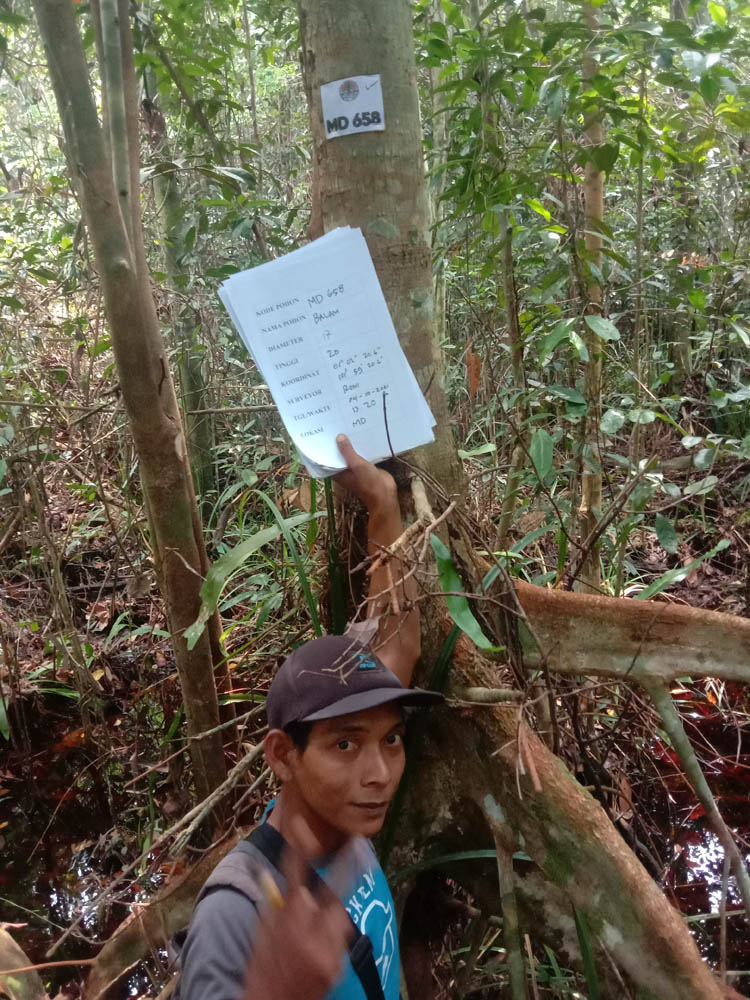 MD 658
KODE POHON MD 658
NAMA POHON BALAM
DIAMETER 17
TINGGI 20
KOORDINAT 01° 02' 20.6"
20.6"
SURVEYOR
TGL/WAKTU
17 20
LOKASI MD